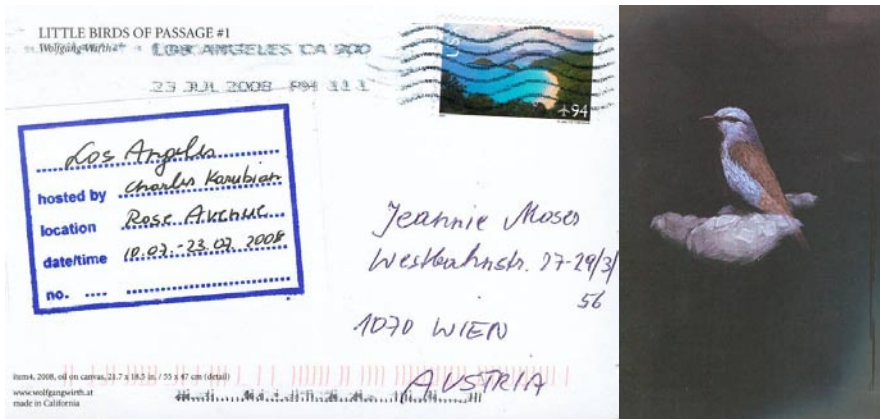 LITTLE BIRDS OF PASSAGE #1
Wolfgang Wirth
LOS ANGELES CA 900
23 JUL 2008 PM 11 1
USA
94
Los Angeles
hosted by Charles Karubian
location Rose Avenue
date/time 10.07.-23.07.2008
no. ....
Jeannie Moser
Westbahnstr. 27-29/3/
56
1070 WIEN
AUSTRIA
item4, 2008, oil on canvas, 21.7 x 18.5 in. / 55 x 47 cm (detail)
www.wolfgangwirth.at
made in California